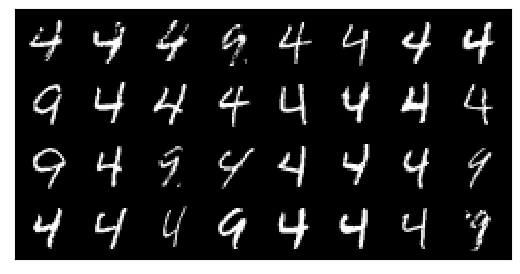 4 4 4 9 4 4 4 4
9 4 4 4 4 4 4 4
9 4 9 4 4 4 4 9
4 4 4 9 4 4 4 9